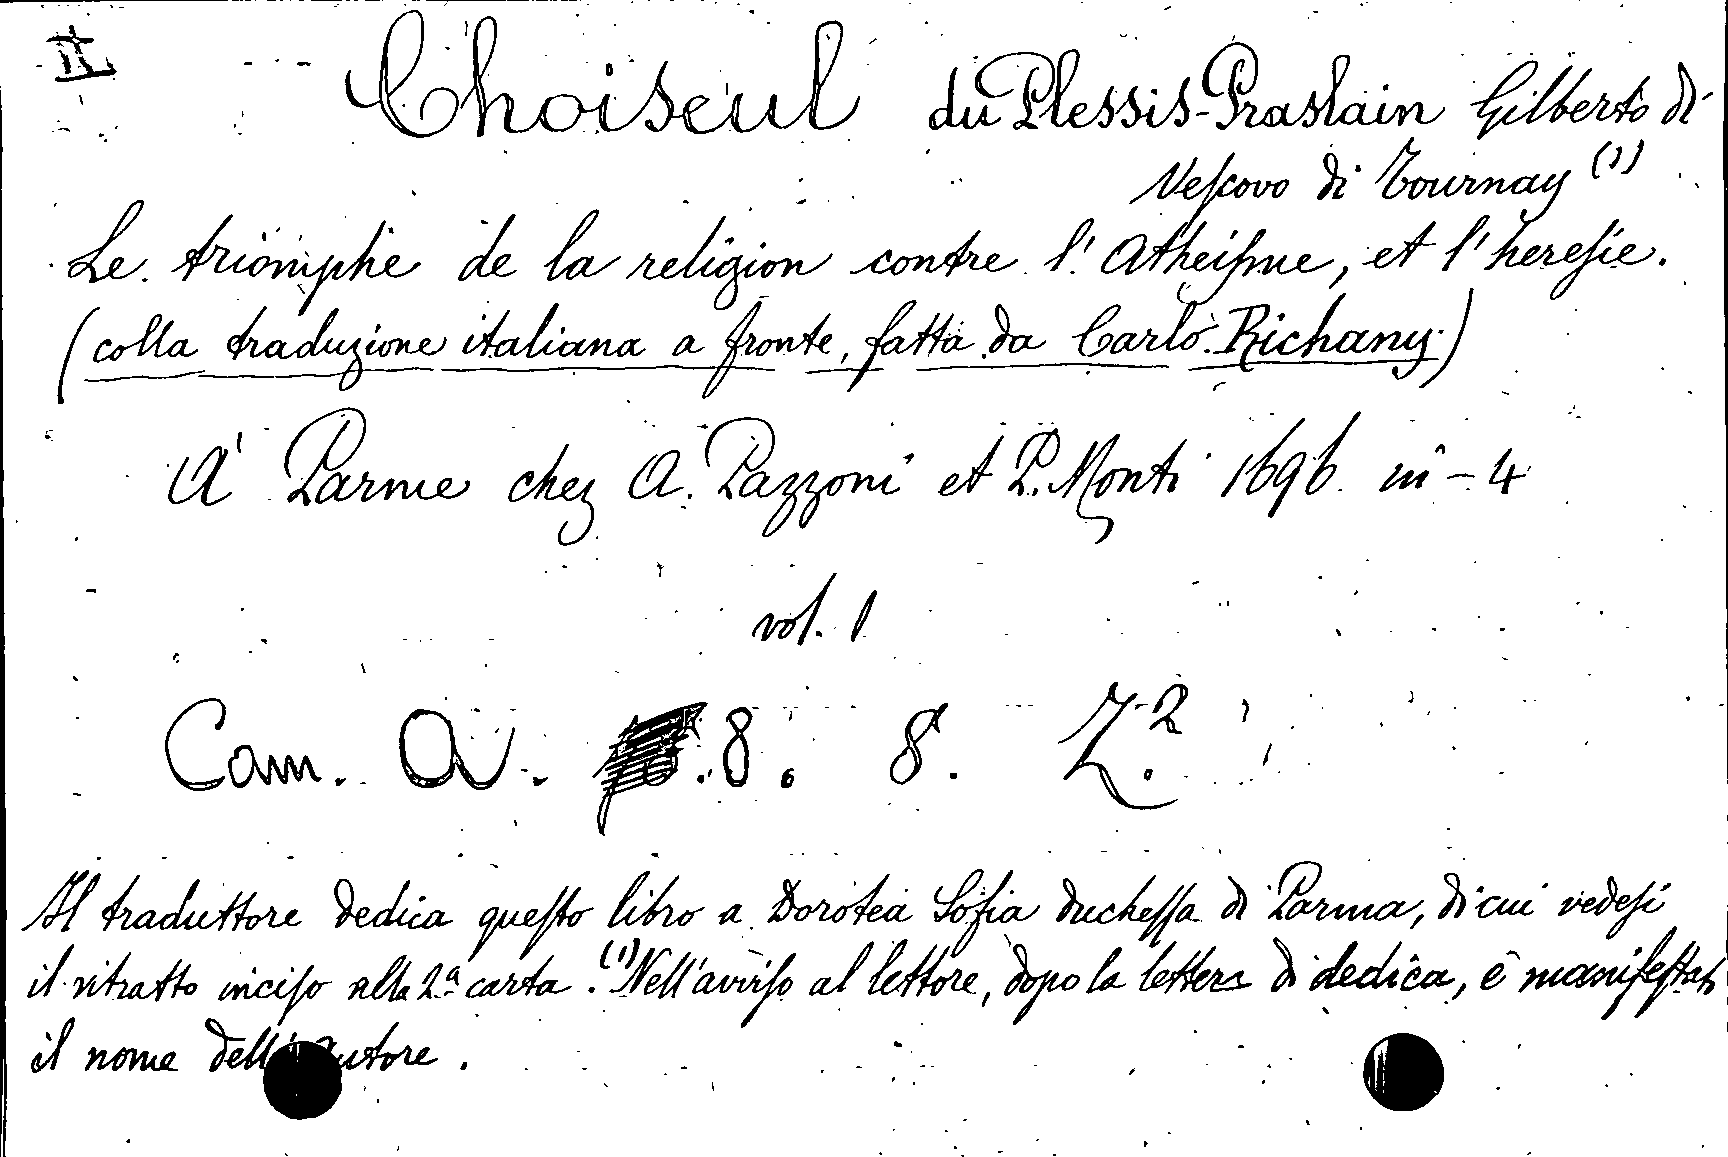 II
Choiseul du Plessis-Praslain Gilberto di
Vescovo di Tournay (1)
Le triomphe de la religion contre l'Atheisme, et l'heresie.
(colla traduzione italiana a fronte, fatta da Carlo Richany.)
A' Parme chez A. Pazzoni et P. Monti 1696 in-4
vol. 1
Cam. A. .8. 8. Z.2
Il traduttore dedica questo libro a Dorotea Sofia duchessa di Parma, di cui vedesi
il ritratto inciso alla 2a carta. (1) Nell'avviso al lettore, dopo la lettera di dedica, è manifestato
il nome dell'autore.